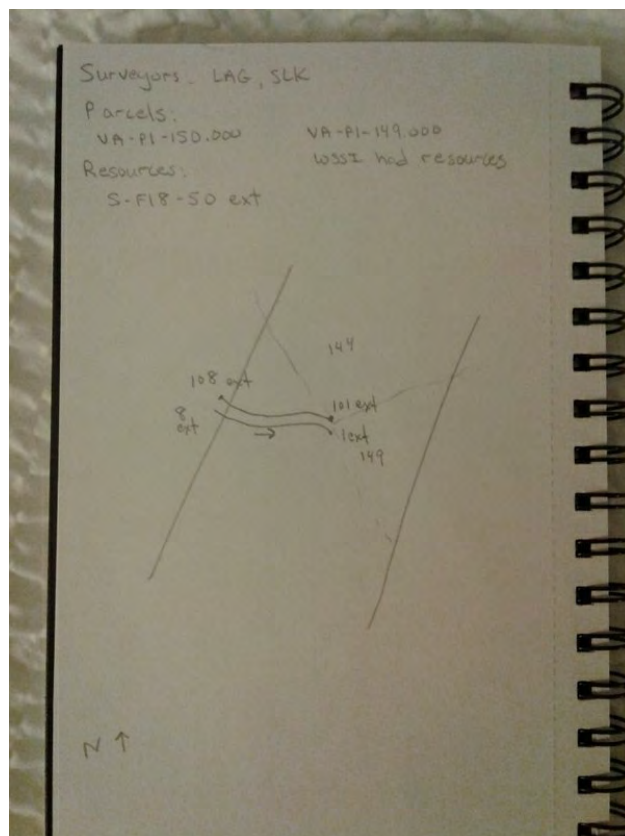 Surveyors: LAG, SLK
Parcels:
VA-PI-150.000 VA-PI-149.000
Resources: WSSI had resources
S-F18-50 ext
144
108 ext
101 ext
8 ext
1ext
149
N ↑